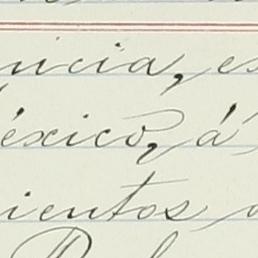 ncia, es
éxico, á
ientos